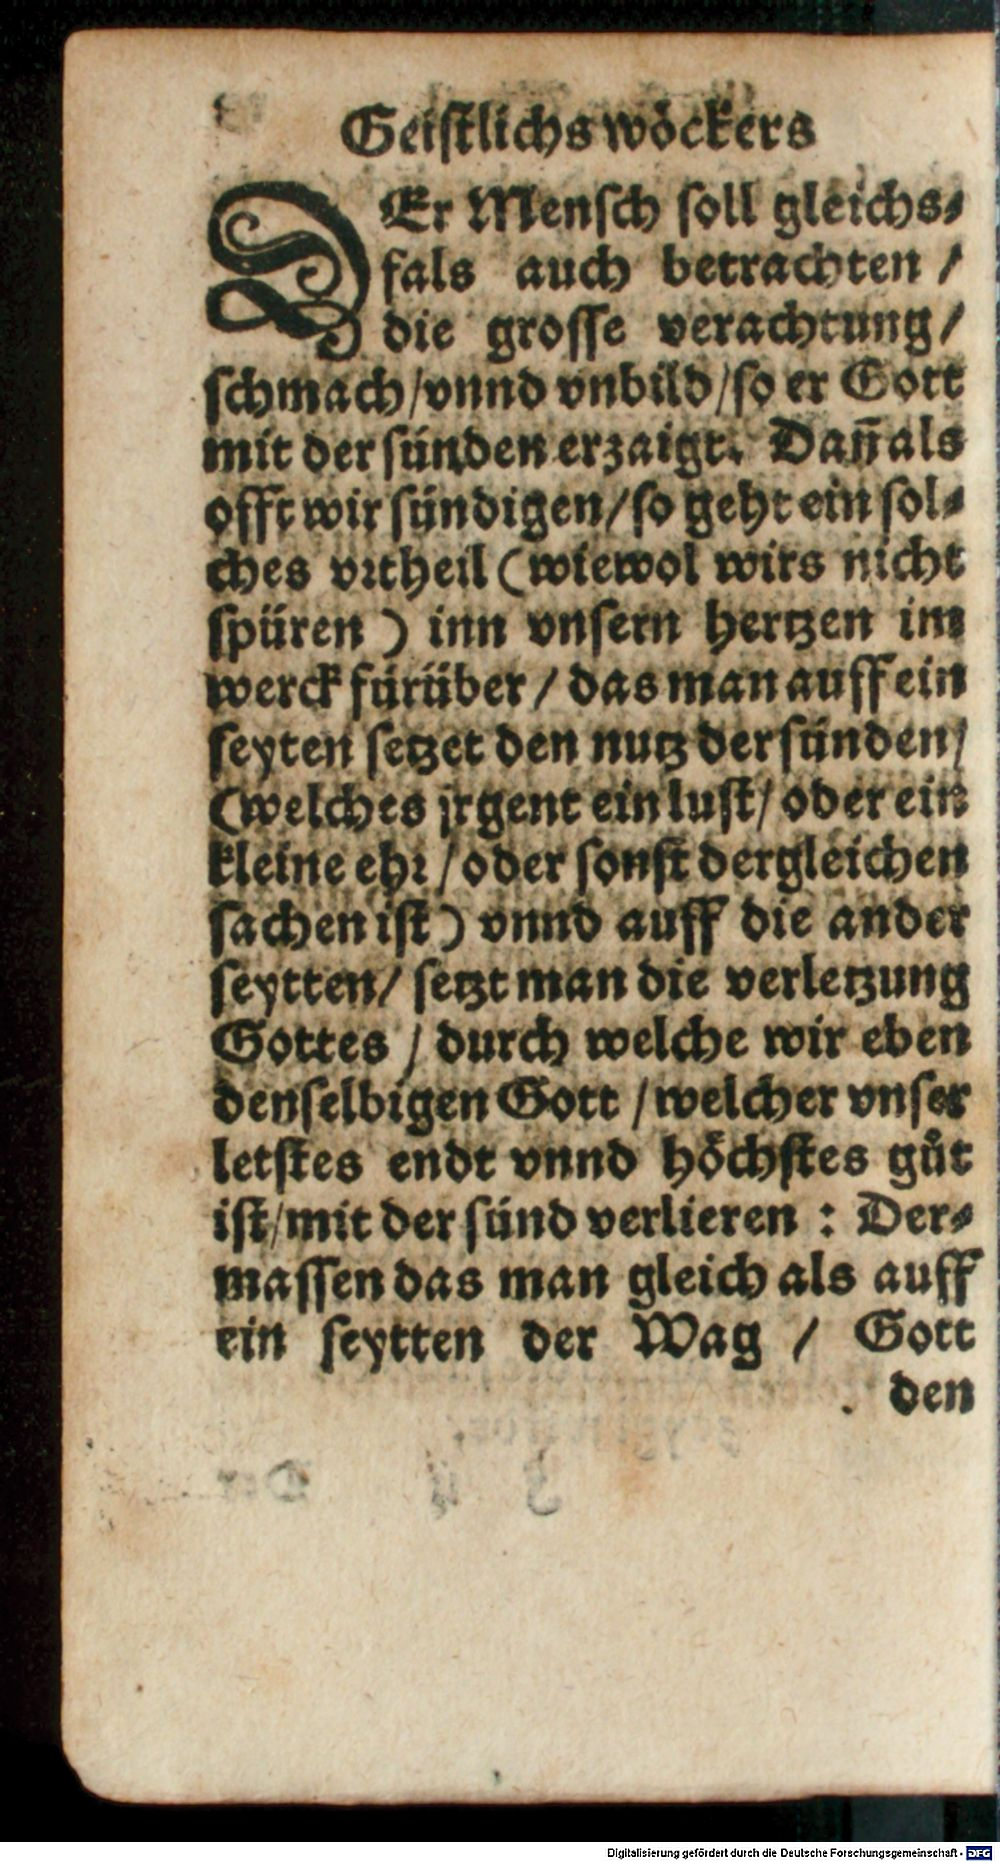 Geistlichs wöckers
DEr Mensch soll gleichs⸗
fals auch betrachten /
die grosse verachtung /
schmach / vnnd vnbild / so er Gott
mit der sünden erzaigt. Dañ als
offt wir sündigen / so geht ein sol⸗
ches vrtheil (wiewol wirs nicht
spüren) inn vnsern hertzen im
werck fürüber / das man auff ein
seyten setzet den nutz der sünden /
(welches jrgent ein lust / oder ein
kleine ehr / oder sonst dergleichen
sachen ist) vnnd auff die ander
seytten / setzt man die verletzung
Gottes / durch welche wir eben
denselbigen Gott / welcher vnser
letstes endt vnnd höchstes gůt
ist / mit der sünd verlieren : Der⸗
massen das man gleich als auff
ein seytten der Wag / Gott
den
Digitalisierung gefördert durch die Deutsche Forschungsgemeinschaft - DFG